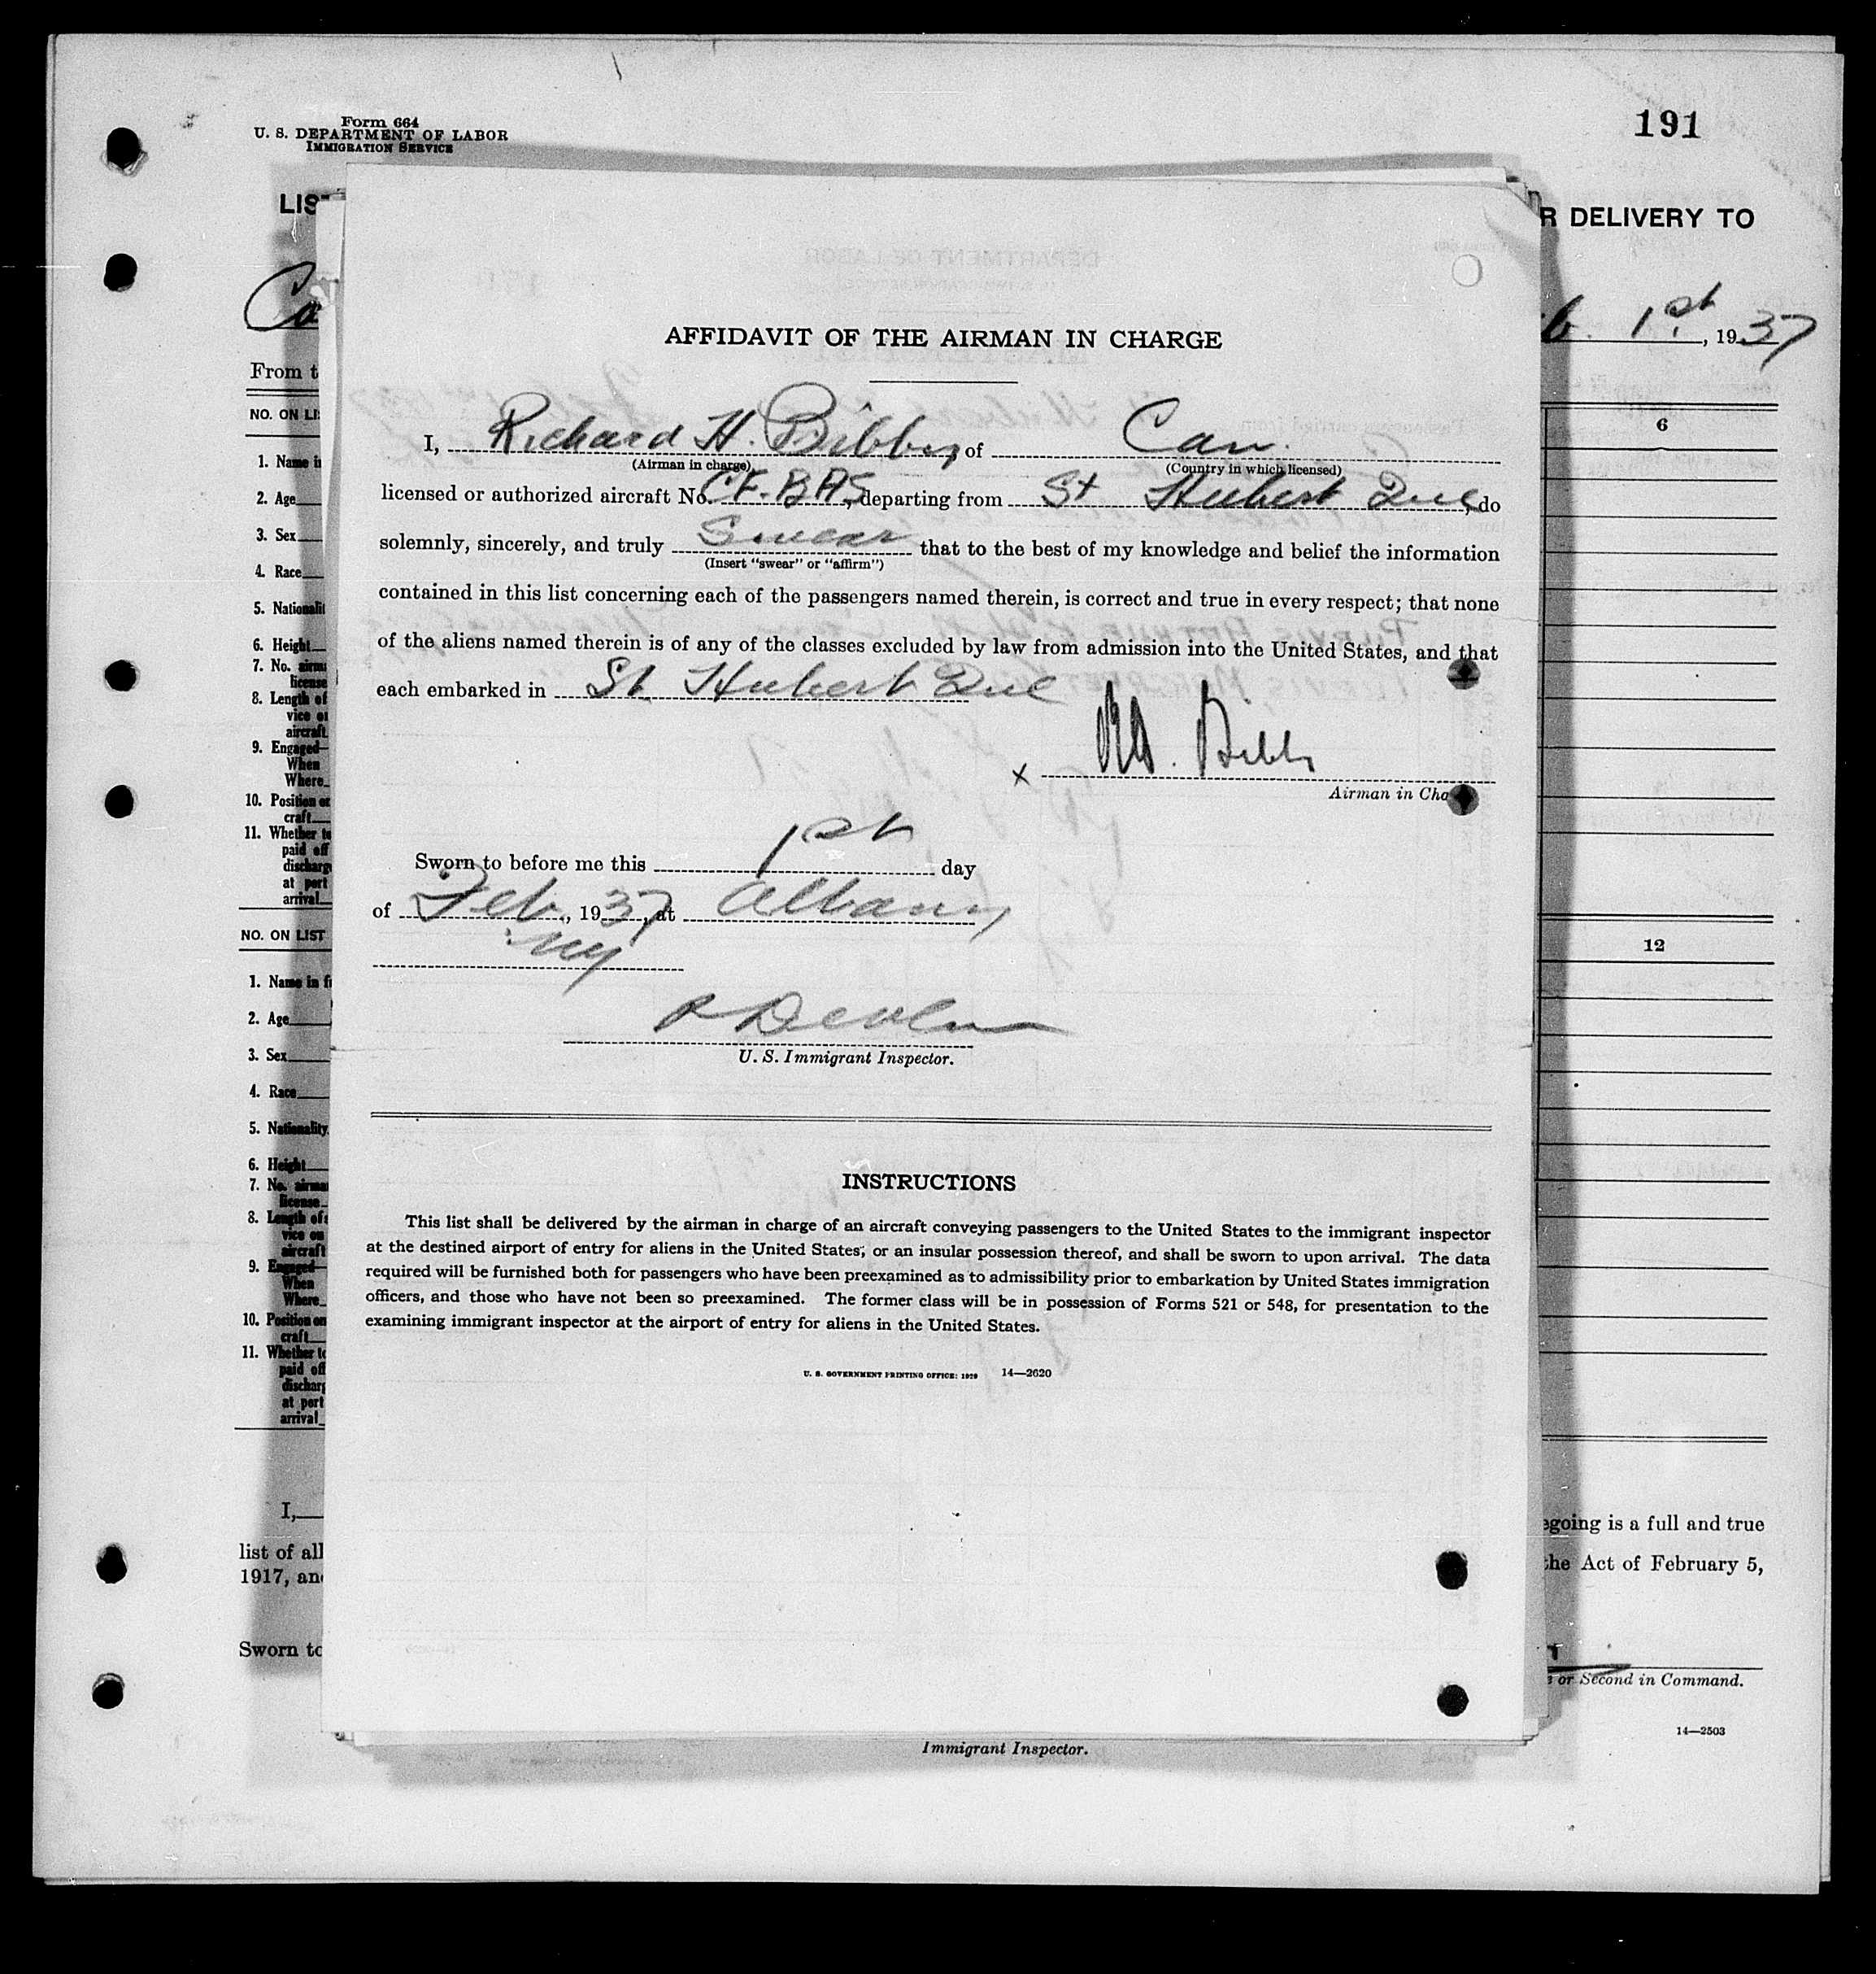 Form 664
U. S. DEPARTMENT OF LABOR
IMMIGRATION SERVICE
191
R DELIVERY TO
1st, 1937
From t
NO. ON LI
1. Name i
2. Age
3. Sex
4. Race
5. Nationalit
6. Height
7. No. airma
license
8. Length of
vice o
aircraft
9. Engaged—
When
Where
10. Position o
craft
11. Whether t
paid off
discharg
at port
arrival
6
AFFIDAVIT OF THE AIRMAN IN CHARGE
I, Richard H. Bibby, of Can.
(Airman in charge) (Country in which licensed)
licensed or authorized aircraft No. CF.BAS, departing from St Hubert Que, do
solemnly, sincerely, and truly Swear that to the best of my knowledge and belief the information
(Insert "swear" or "affirm")
contained in this list concerning each of the passengers named therein, is correct and true in every respect; that none
of the aliens named therein is of any of the classes excluded by law from admission into the United States, and that
each embarked in St Hubert Que
x Bibby
Airman in Cha
Sworn to before me this 1st day
of Feb, 1937, at Albany
NY
R Devlin
U. S. Immigrant Inspector.
INSTRUCTIONS
This list shall be delivered by the airman in charge of an aircraft conveying passengers to the United States to the immigrant inspector
at the destined airport of entry for aliens in the United States, or an insular possession thereof, and shall be sworn to upon arrival. The data
required will be furnished both for passengers who have been preexamined as to admissibility prior to embarkation by United States immigration
officers, and those who have not been so preexamined. The former class will be in possession of Forms 521 or 548, for presentation to the
examining immigrant inspector at the airport of entry for aliens in the United States.
U. S. GOVERNMENT PRINTING OFFICE: 1929 14—2620
NO. ON LIST
1. Name in f
2. Age
3. Sex
4. Race
5. Nationality
6. Height
7. No. airma
license
8. Length of
vice on
aircraft
9. Engaged—
When
Where
10. Position on
craft
11. Whether to
paid off
discharg
at port
arrival
12
I,
list of all
1917, an
Sworn to
egoing is a full and true
the Act of February 5,
or Second in Command.
14—2503
Immigrant Inspector.